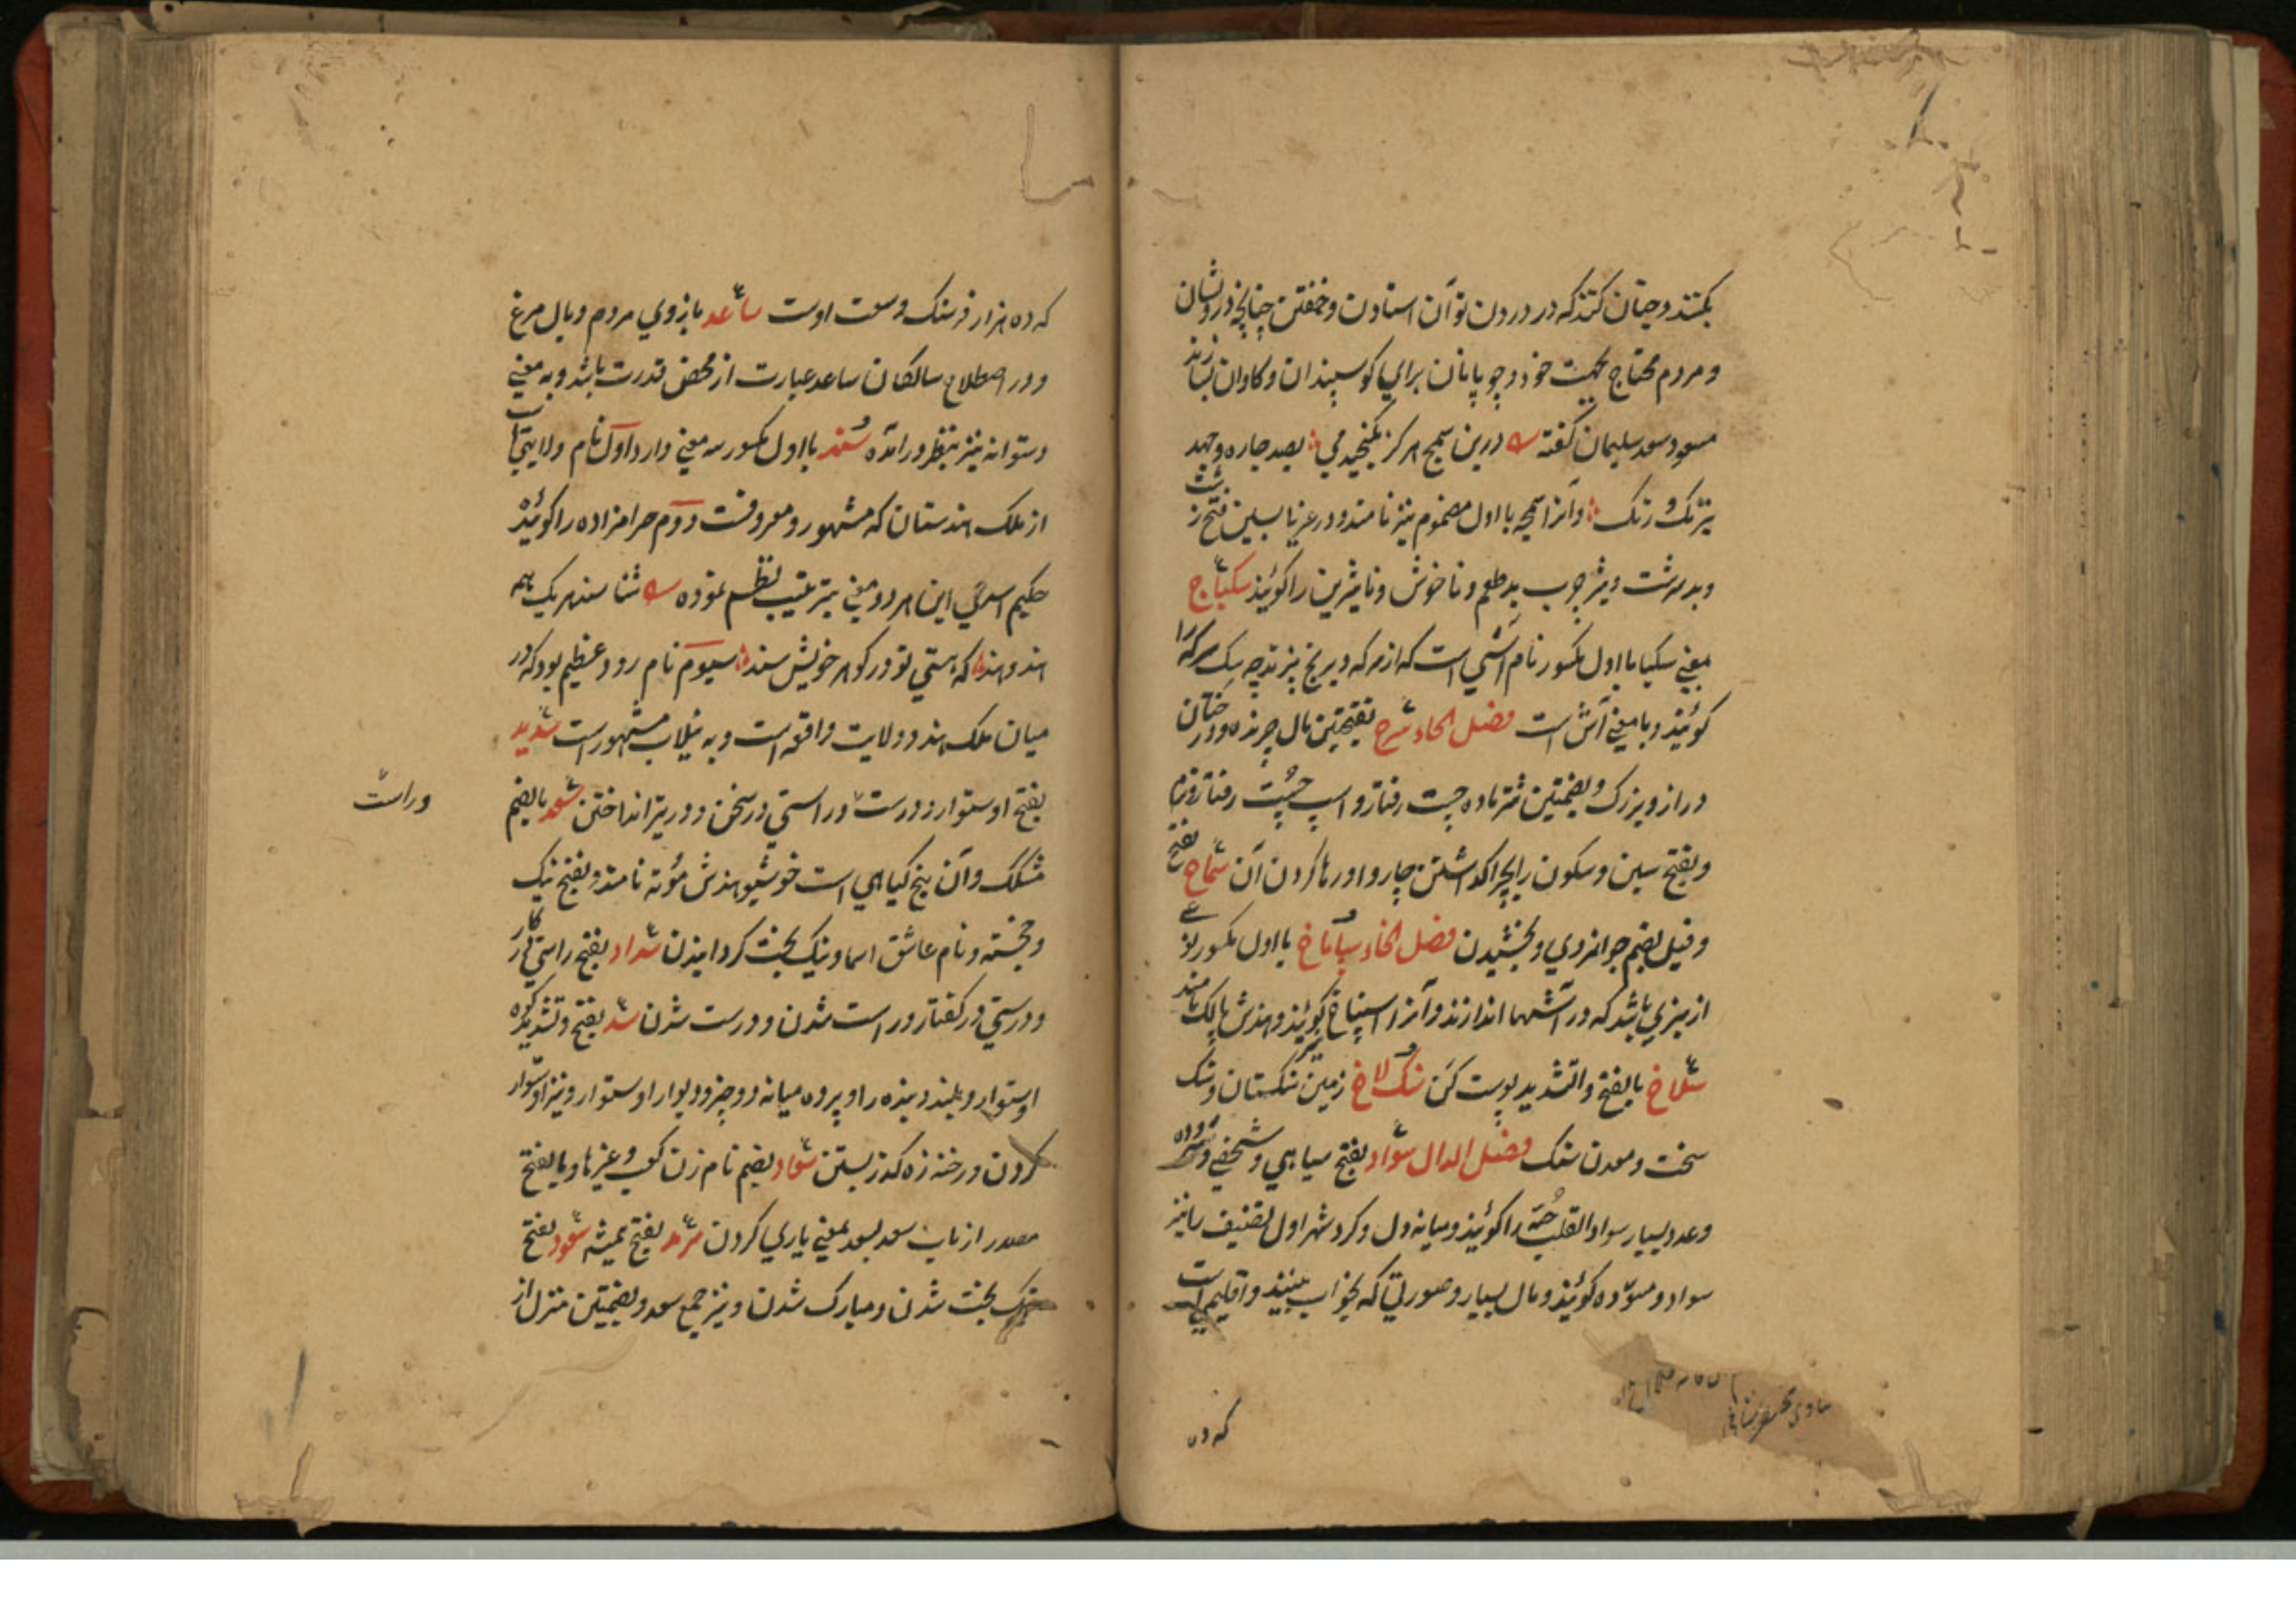 بکنند و چنان کنند که در درون توان استادن و خفتن چنانچه درویشان
و مردم محتاج بجهت خود و چوپانان برای کوسپندان و کاوان بسازند
مسعود سعد سلیمان کفته درین سمج هرکز نکنجیدمی بصد چاره و جهد
نیرنک و رنک و آنرا سمجه با اول مضموم نیز نامند و در عربی
و بدسرشت و نیز چرب بدطعم و ناخوش و ناشیرین را کویند سکباج
معنی سکبا با اول مکسور نام آشی است که از سرکه و برنج پزند چه سک سرکه را
کویند و با معنی آش است فصل الحاء سرح بفتحتین مال چرنده و درختان
دراز و بزرک و بضمتین شتر ماده چست رفتار و اسپ چست رفتار
و بفتح سین و سکون را بچرا کذاشتن چاروا و رها کردن آن سماح بفتح
و قیل بضم جوانمردی و بخشیدن فصل الخاء سپاناخ با اول مکسور
از سبزی باشد که در آشها اندازند و آنرا اسپناخ کویند و هندش پالک نامند
سلاخ بالفتح و التشدید پوست کن سنک لاخ زمین سنکستان و سنک
سخت و معدن سنک فصل الدال سواد بفتح سیاهی و شخصی
و عدد بسیار سواد القلب حبّه را کویند و میانه دل و کرد شهر اول تصنیف را نیز
سواد و مسوّده کویند و مال بسیار و صورتی که بخواب بینند و اقلیمی است
که ده
که ده هزار فرسنک وسعت اوست ساعد بازوی مردم و بال مرغ
و در اصطلاح سالکان ساعد عبارت از محض قدرت باشد و به معنی
دستوانه نیز بنظر درآمده سند با اول مکسور سه معنی دارد اول نام ولایتی است
از ملک هندستان که مشهور و معروفست دوم حرامزاده را کویند
حکیم اسدی این هر دو معنی بترتیب نظم نموده
هند و سند که هستی تو در کوهر خویش سند سیوم نام رود عظیم بود که در
میان ملک هند و ولایت واقع است و به نیلاب مشهور است سدید
بفتح اوستوار و درست و راستی در سخن و در تیر انداختن سعد بالضم
وراست
مشکک و آن بیخ کیاهی است خوشبو هندش موته نامند و بفتح نیک
و خجسته و نام عاشق اسما و نیک بخت کردانیدن سداد بفتح راستی در کار
و درستی در کفتار و راست شدن و درست شدن سد بفتح و تشدید کوه
اوستوار و بلند و بنده را و پرده میانه دو چیز و دیوار اوستوار و نیز اوستوار
کردن و رخنه و ره کذر بستن سعاد بضم نام زن کعب و غیرها و بالفتح
مصدر از باب سعد یسعد بمعنی یاری کردن سرمد بفتح همیشه سعود بفتح
نیک بخت شدن و مبارک شدن و نیز جمع سعد و بضمتین منزل از